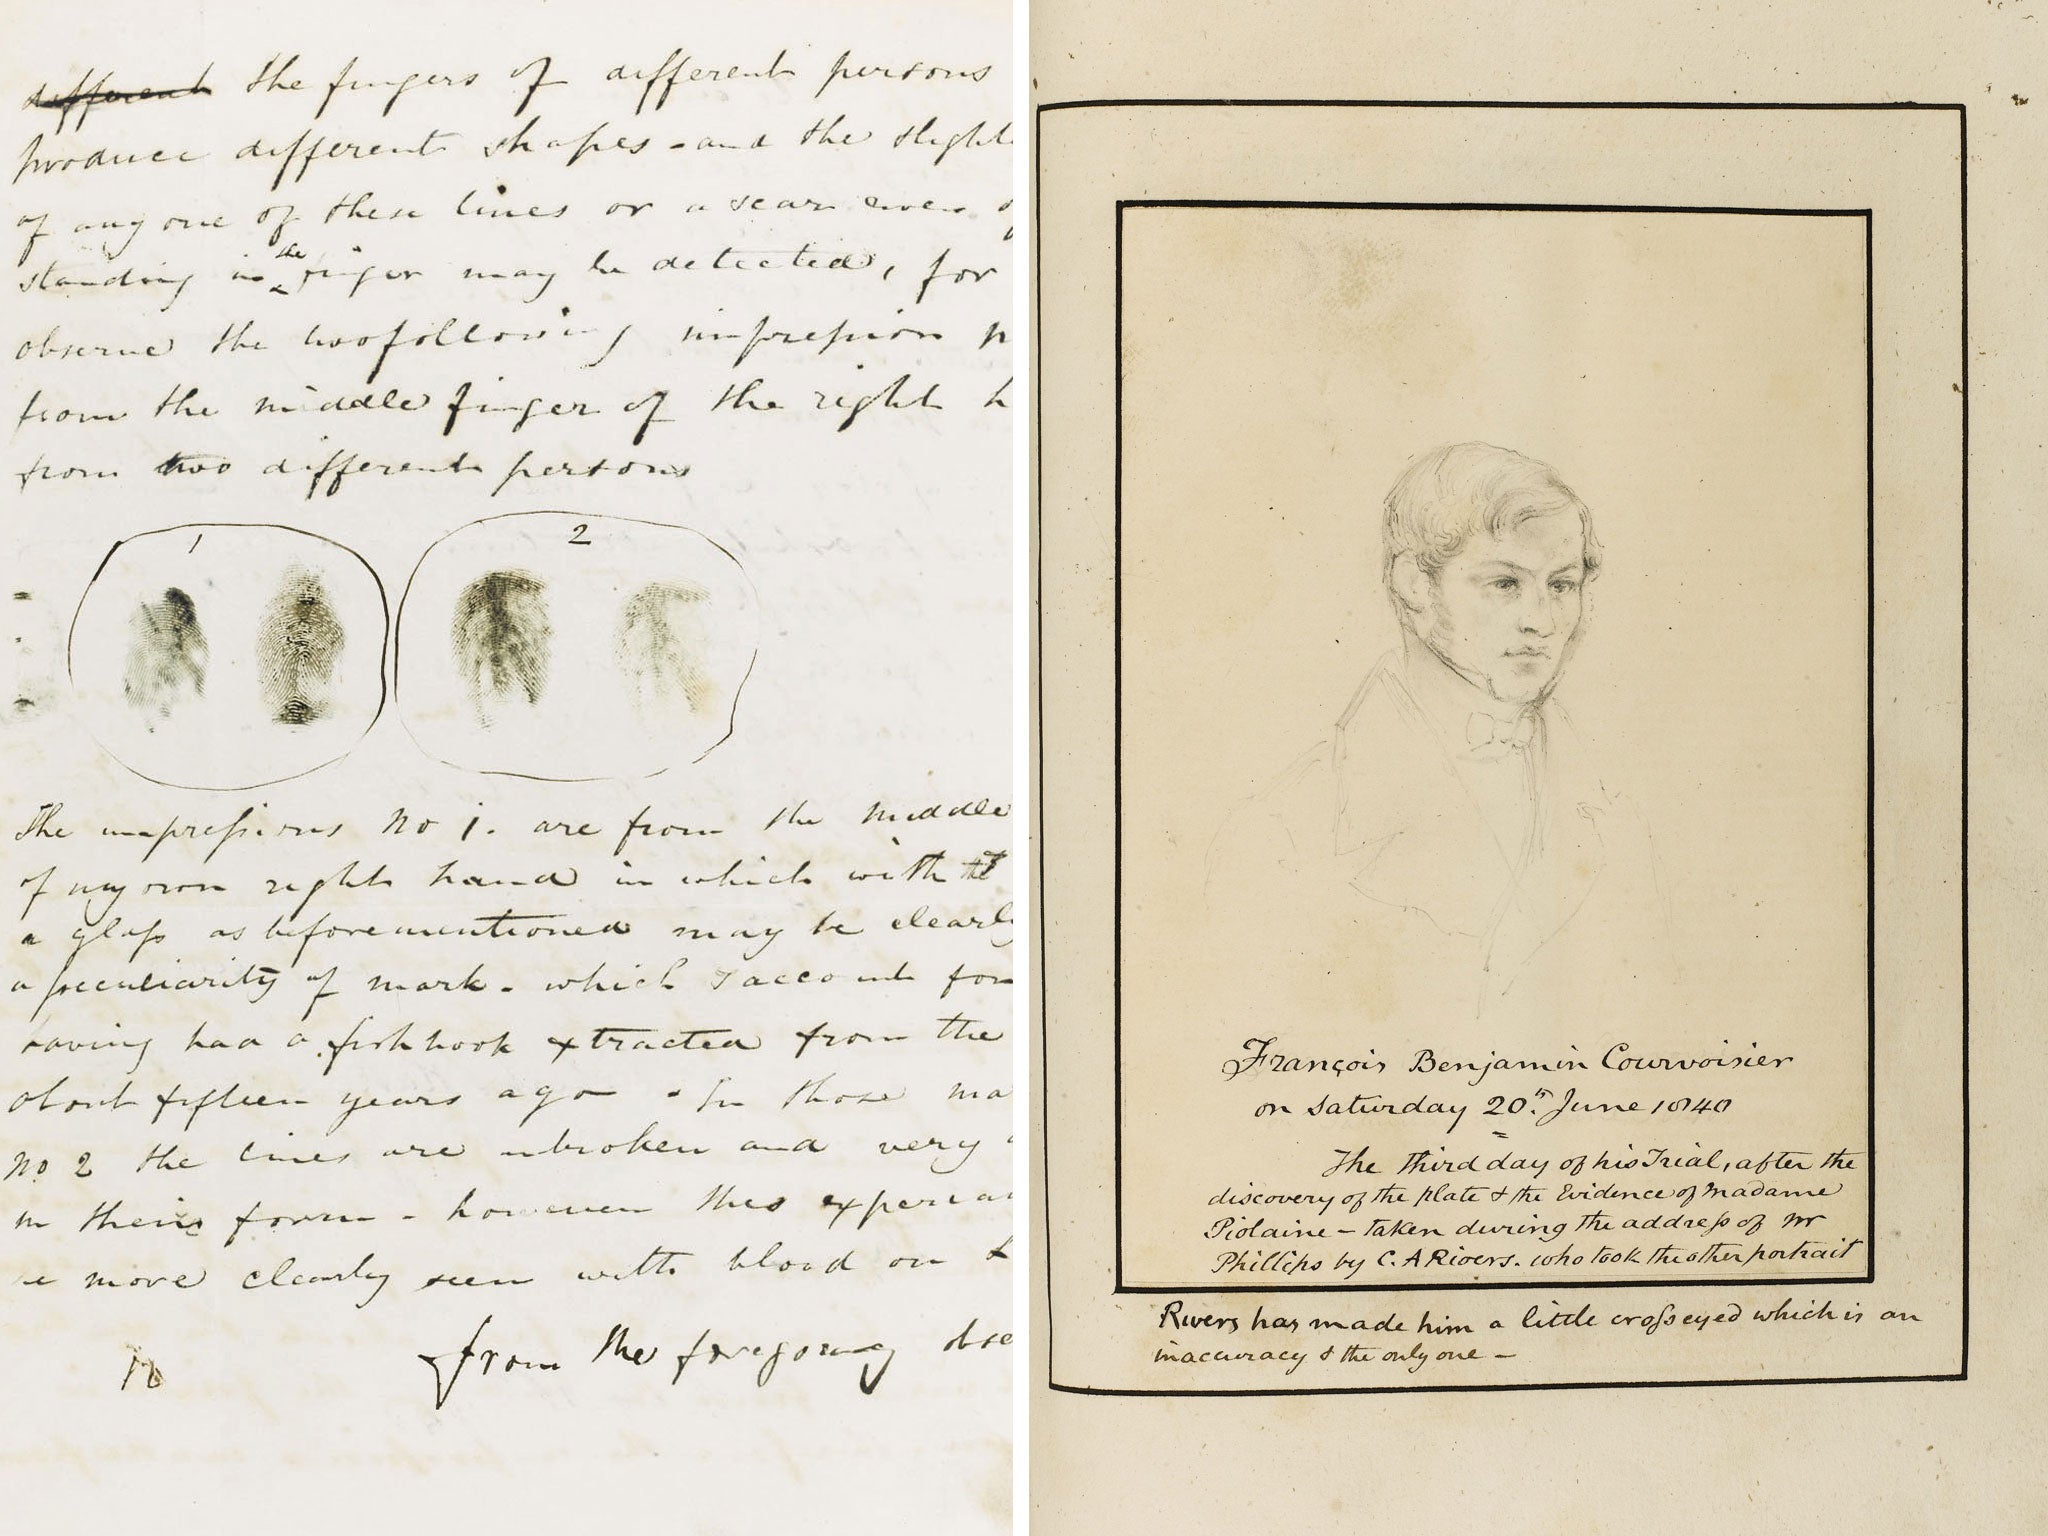 different the fingers of different persons
produce different shapes - and the slight
of any one of these lines or a scar even
standing in the finger may be detected, for
observe the two following impression
from the middle finger of the right h
from two different persons
1
2
The impressions No 1. are from the middle
of my own right hand in which with
a glass as beforementioned may be clearly
a peculiarity of mark - which I account for
having had a fish hook extracted from the
about fifteen years ago - In those ma
No 2 the lines are unbroken and very
in their form - however this experim
more clearly seen with blood on
from the foregoing obse
François Benjamin Courvoisier
on Saturday 20th June 1840
The third day of his Trial, after the
discovery of the plate & the Evidence of Madame
Piolaine - taken during the address of Mr
Phillips by C. A Rivers. who took the other portrait
Rivers has made him a little cross eyed which is an
inaccuracy & the only one -